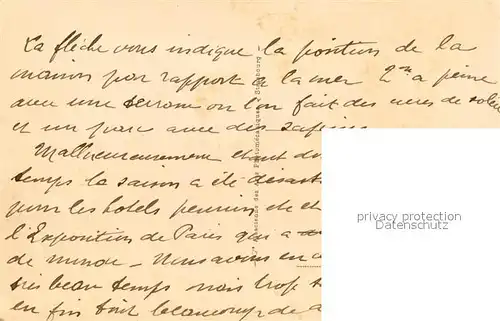 La flèche vous indique la position de la
maison par rapport a la mer 2m a peine
avec une terrasse ou l'on fait des cures de soleil
et un parc avec des sapins
Malheureusement etant d
temps la saison a été désast
pour les hotels pensions, etc et
l'Exposition de Paris qui a
de monde - Nous avons eu
très beau temps mais trop
en fin tout beaucoup de
privacy protection
Datenschutz